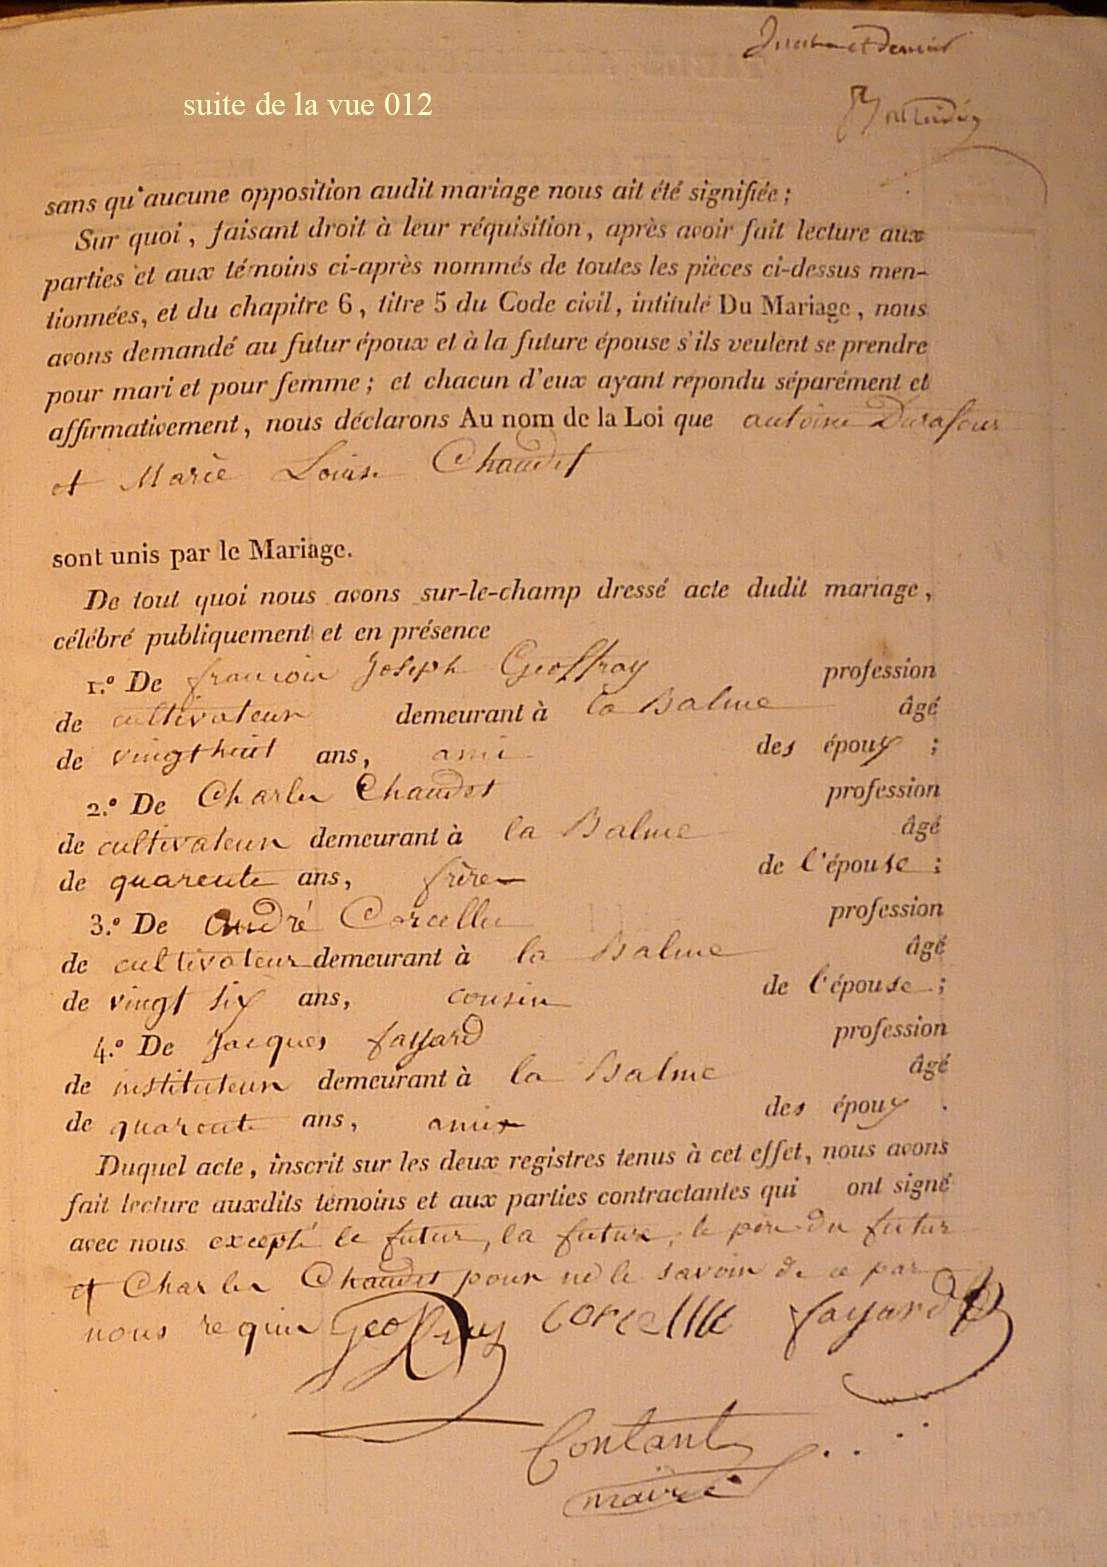 suite de la vue 012
sans qu'aucune opposition audit mariage nous ait été signifiée ;
Sur quoi, faisant droit à leur réquisition, après avoir fait lecture aux
parties et aux témoins ci-après nommés de toutes les pièces ci-dessus men-
tionnées, et du chapitre 6, titre 5 du Code civil, intitulé Du Mariage, nous
avons demandé au futur époux et à la future épouse s'ils veulent se prendre
pour mari et pour femme ; et chacun d'eux ayant repondu séparément et
affirmativement, nous déclarons Au nom de la Loi que antoine Durafour
et Marie Louise Chaudet
sont unis par le Mariage.
De tout quoi nous avons sur-le-champ dressé acte dudit mariage,
célébré publiquement et en présence
1.º De francois Joseph Geoffray profession
de cultivateur demeurant à la Balme âgé
de vingt huit ans, ami des époux ;
2.º De Charles Chaudet profession
de cultivateur demeurant à la Balme âgé
de quarente ans, frère de l'épouse ;
3.º De André Corcelle profession
de cultivateur demeurant à la Balme âgé
de vingt six ans, cousin de l'épouse ;
4.º De Jacques fayard profession
de instituteur demeurant à la Balme âgé
de quarente ans, amis des époux .
Duquel acte, inscrit sur les deux registres tenus à cet effet, nous avons
fait lecture auxdits témoins et aux parties contractantes qui ont signé
avec nous excepté le futur, la future, le père du futur
et Charles Chaudet pour ne le savoir de ce par
nous requis Geoffray corcelle fayard
Contant
maire